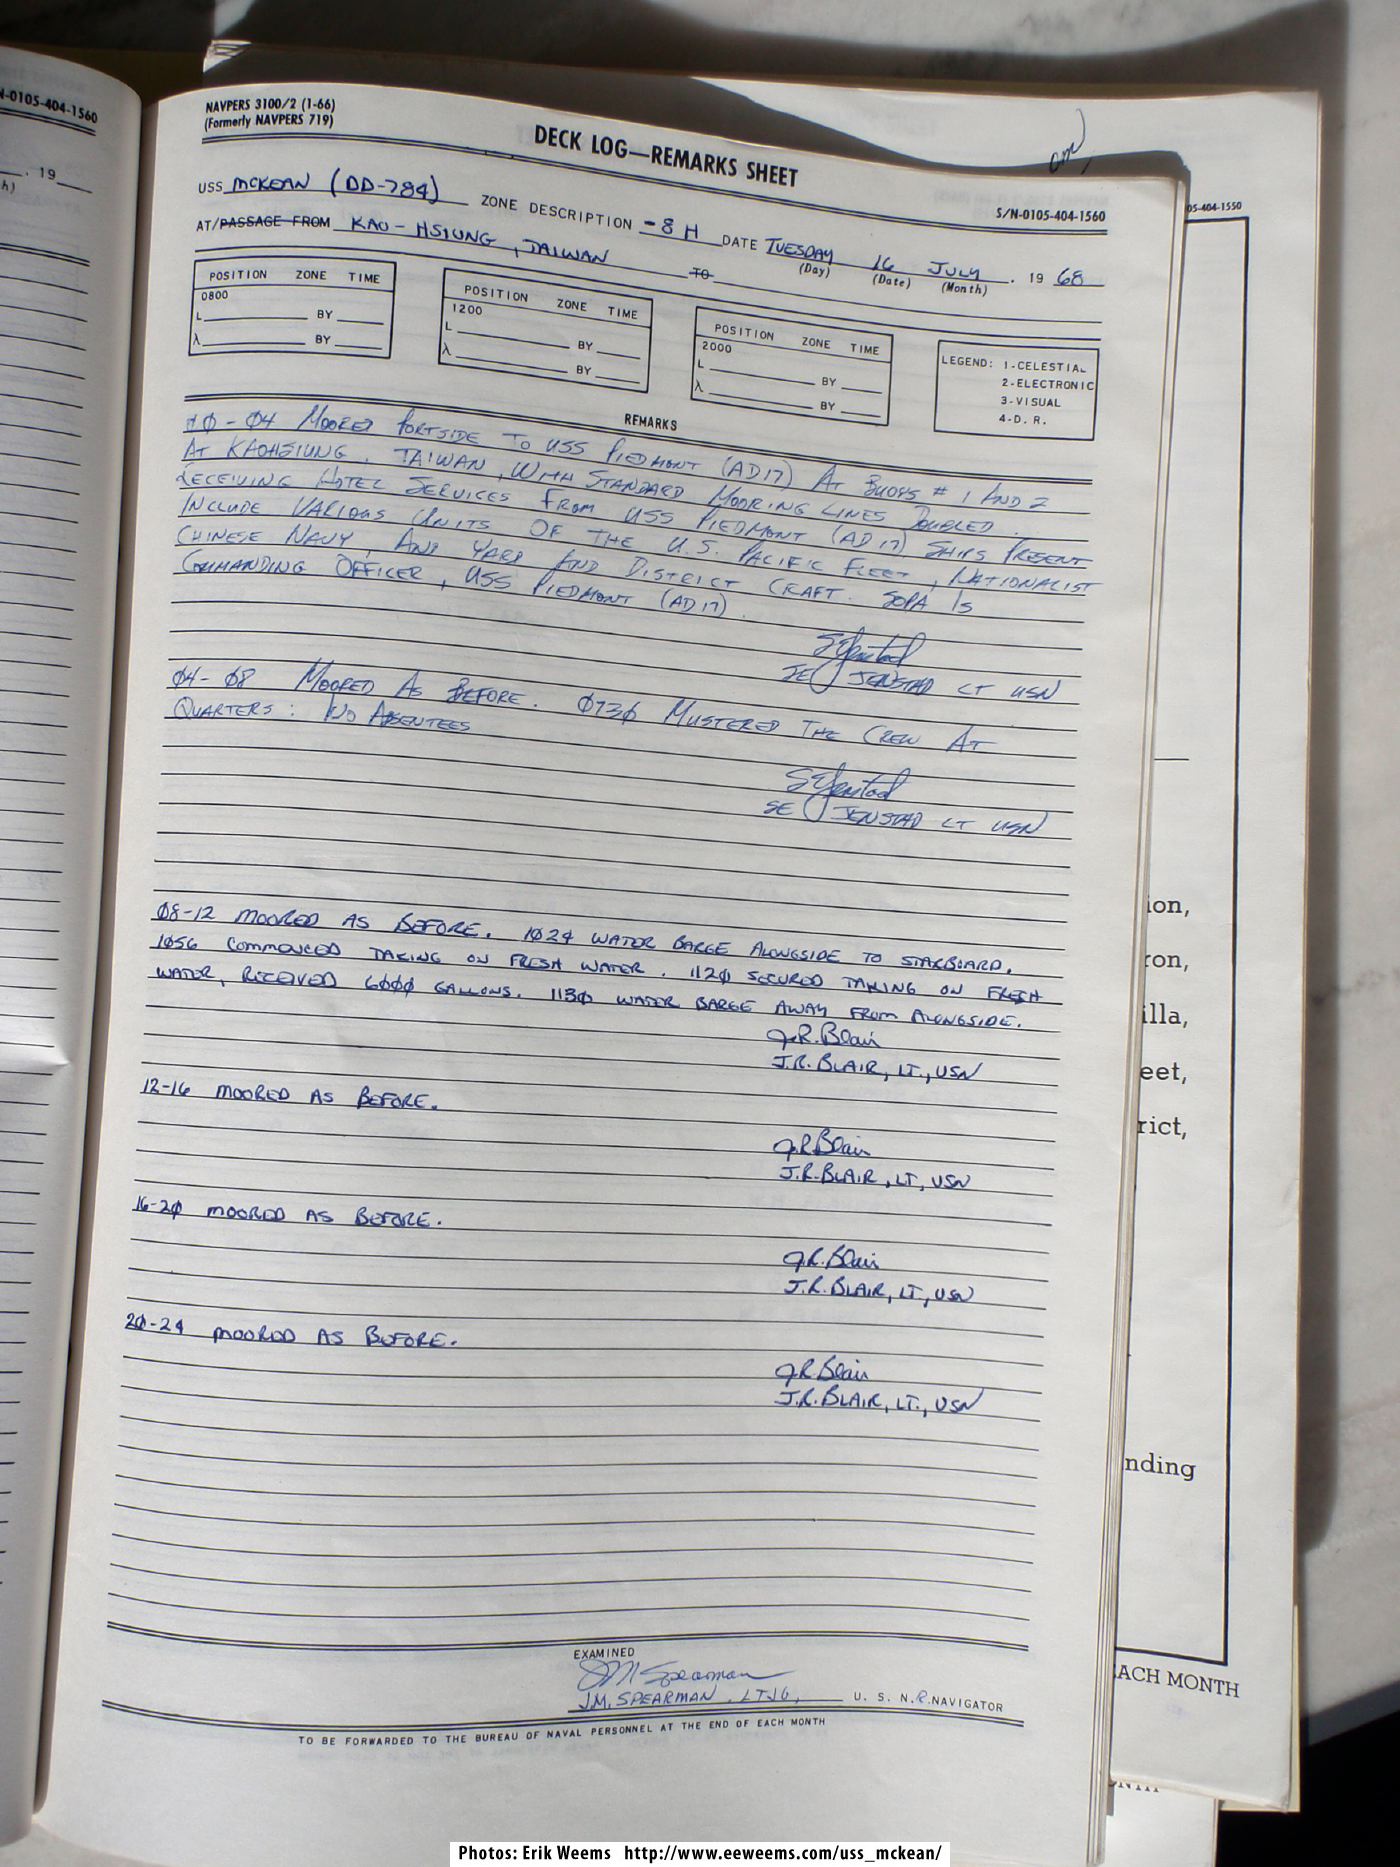 N-0105-404-1560
, 19
h)
NAVPERS 3100/2 (1-66)
(Formerly NAVPERS 719)
DECK LOG—REMARKS SHEET
S/N-0105-404-1560
05-404-1550
USS MCKEAN (DD-784) ZONE DESCRIPTION -8 H DATE TUESDAY 16 JULY . 19 68
(Day) (Date) (Month)
AT/PASSAGE FROM KAO-HSIUNG, TAIWAN TO
POSITION ZONE TIME
0800
L BY
λ BY
POSITION ZONE TIME
1200
L BY
λ BY
POSITION ZONE TIME
2000
L BY
λ BY
LEGEND: 1-CELESTIAL
2-ELECTRONIC
3-VISUAL
4-D. R.
REMARKS
ØØ-Ø4 MOORED PORTSIDE TO USS PIEDMONT (AD17) AT BUOYS # 1 AND 2
AT KAOHSIUNG, TAIWAN, WITH STANDARD MOORING LINES DOUBLED.
RECEIVING HOTEL SERVICES FROM USS PIEDMONT (AD17) SHIPS PRESENT
INCLUDE VARIOUS UNITS OF THE U.S. PACIFIC FLEET, NATIONALIST
CHINESE NAVY, AND YARD AND DISTRICT CRAFT. SOPA IS
COMMANDING OFFICER, USS PIEDMONT (AD17).
SE Jenstad
SE JENSTAD LT USN
Ø4-Ø8 MOORED AS BEFORE. Ø73Ø MUSTERED THE CREW AT
QUARTERS: NO ABSENTEES
SE Jenstad
SE JENSTAD LT USN
Ø8-12 MOORED AS BEFORE. 1Ø24 WATER BARGE ALONGSIDE TO STARBOARD.
1Ø56 COMMENCED TAKING ON FRESH WATER. 112Ø SECURED TAKING ON FRESH
WATER, RECEIVED 6ØØØ GALLONS. 113Ø WATER BARGE AWAY FROM ALONGSIDE.
J.R. Blair
J.R. BLAIR, LT., USN
12-16 MOORED AS BEFORE.
J.R. Blair
J.R. BLAIR, LT, USN
16-2Ø MOORED AS BEFORE.
J.R. Blair
J.R. BLAIR, LT., USN
2Ø-24 MOORED AS BEFORE.
J.R. Blair
J.R. BLAIR, LT., USN
EXAMINED
JM Spearman
J.M. SPEARMAN, LTJG, U. S. N.R. NAVIGATOR
TO BE FORWARDED TO THE BUREAU OF NAVAL PERSONNEL AT THE END OF EACH MONTH
ion,
ron,
illa,
eet,
rict,
nding
EACH MONTH
Photos: Erik Weems http://www.eeweems.com/uss_mckean/